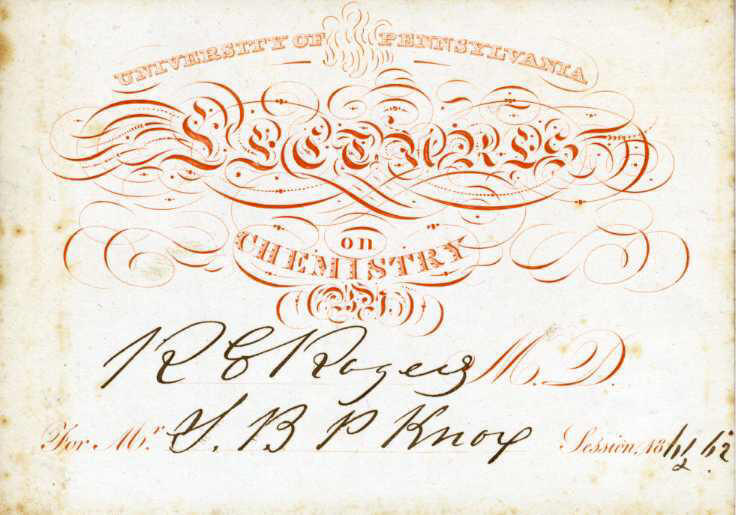 UNIVERSITY OF PENNSYLVANIA
LECTURES
on
CHEMISTRY
BY
R E Rogers M.D.
For Mr. S. B P Knox Session, 18